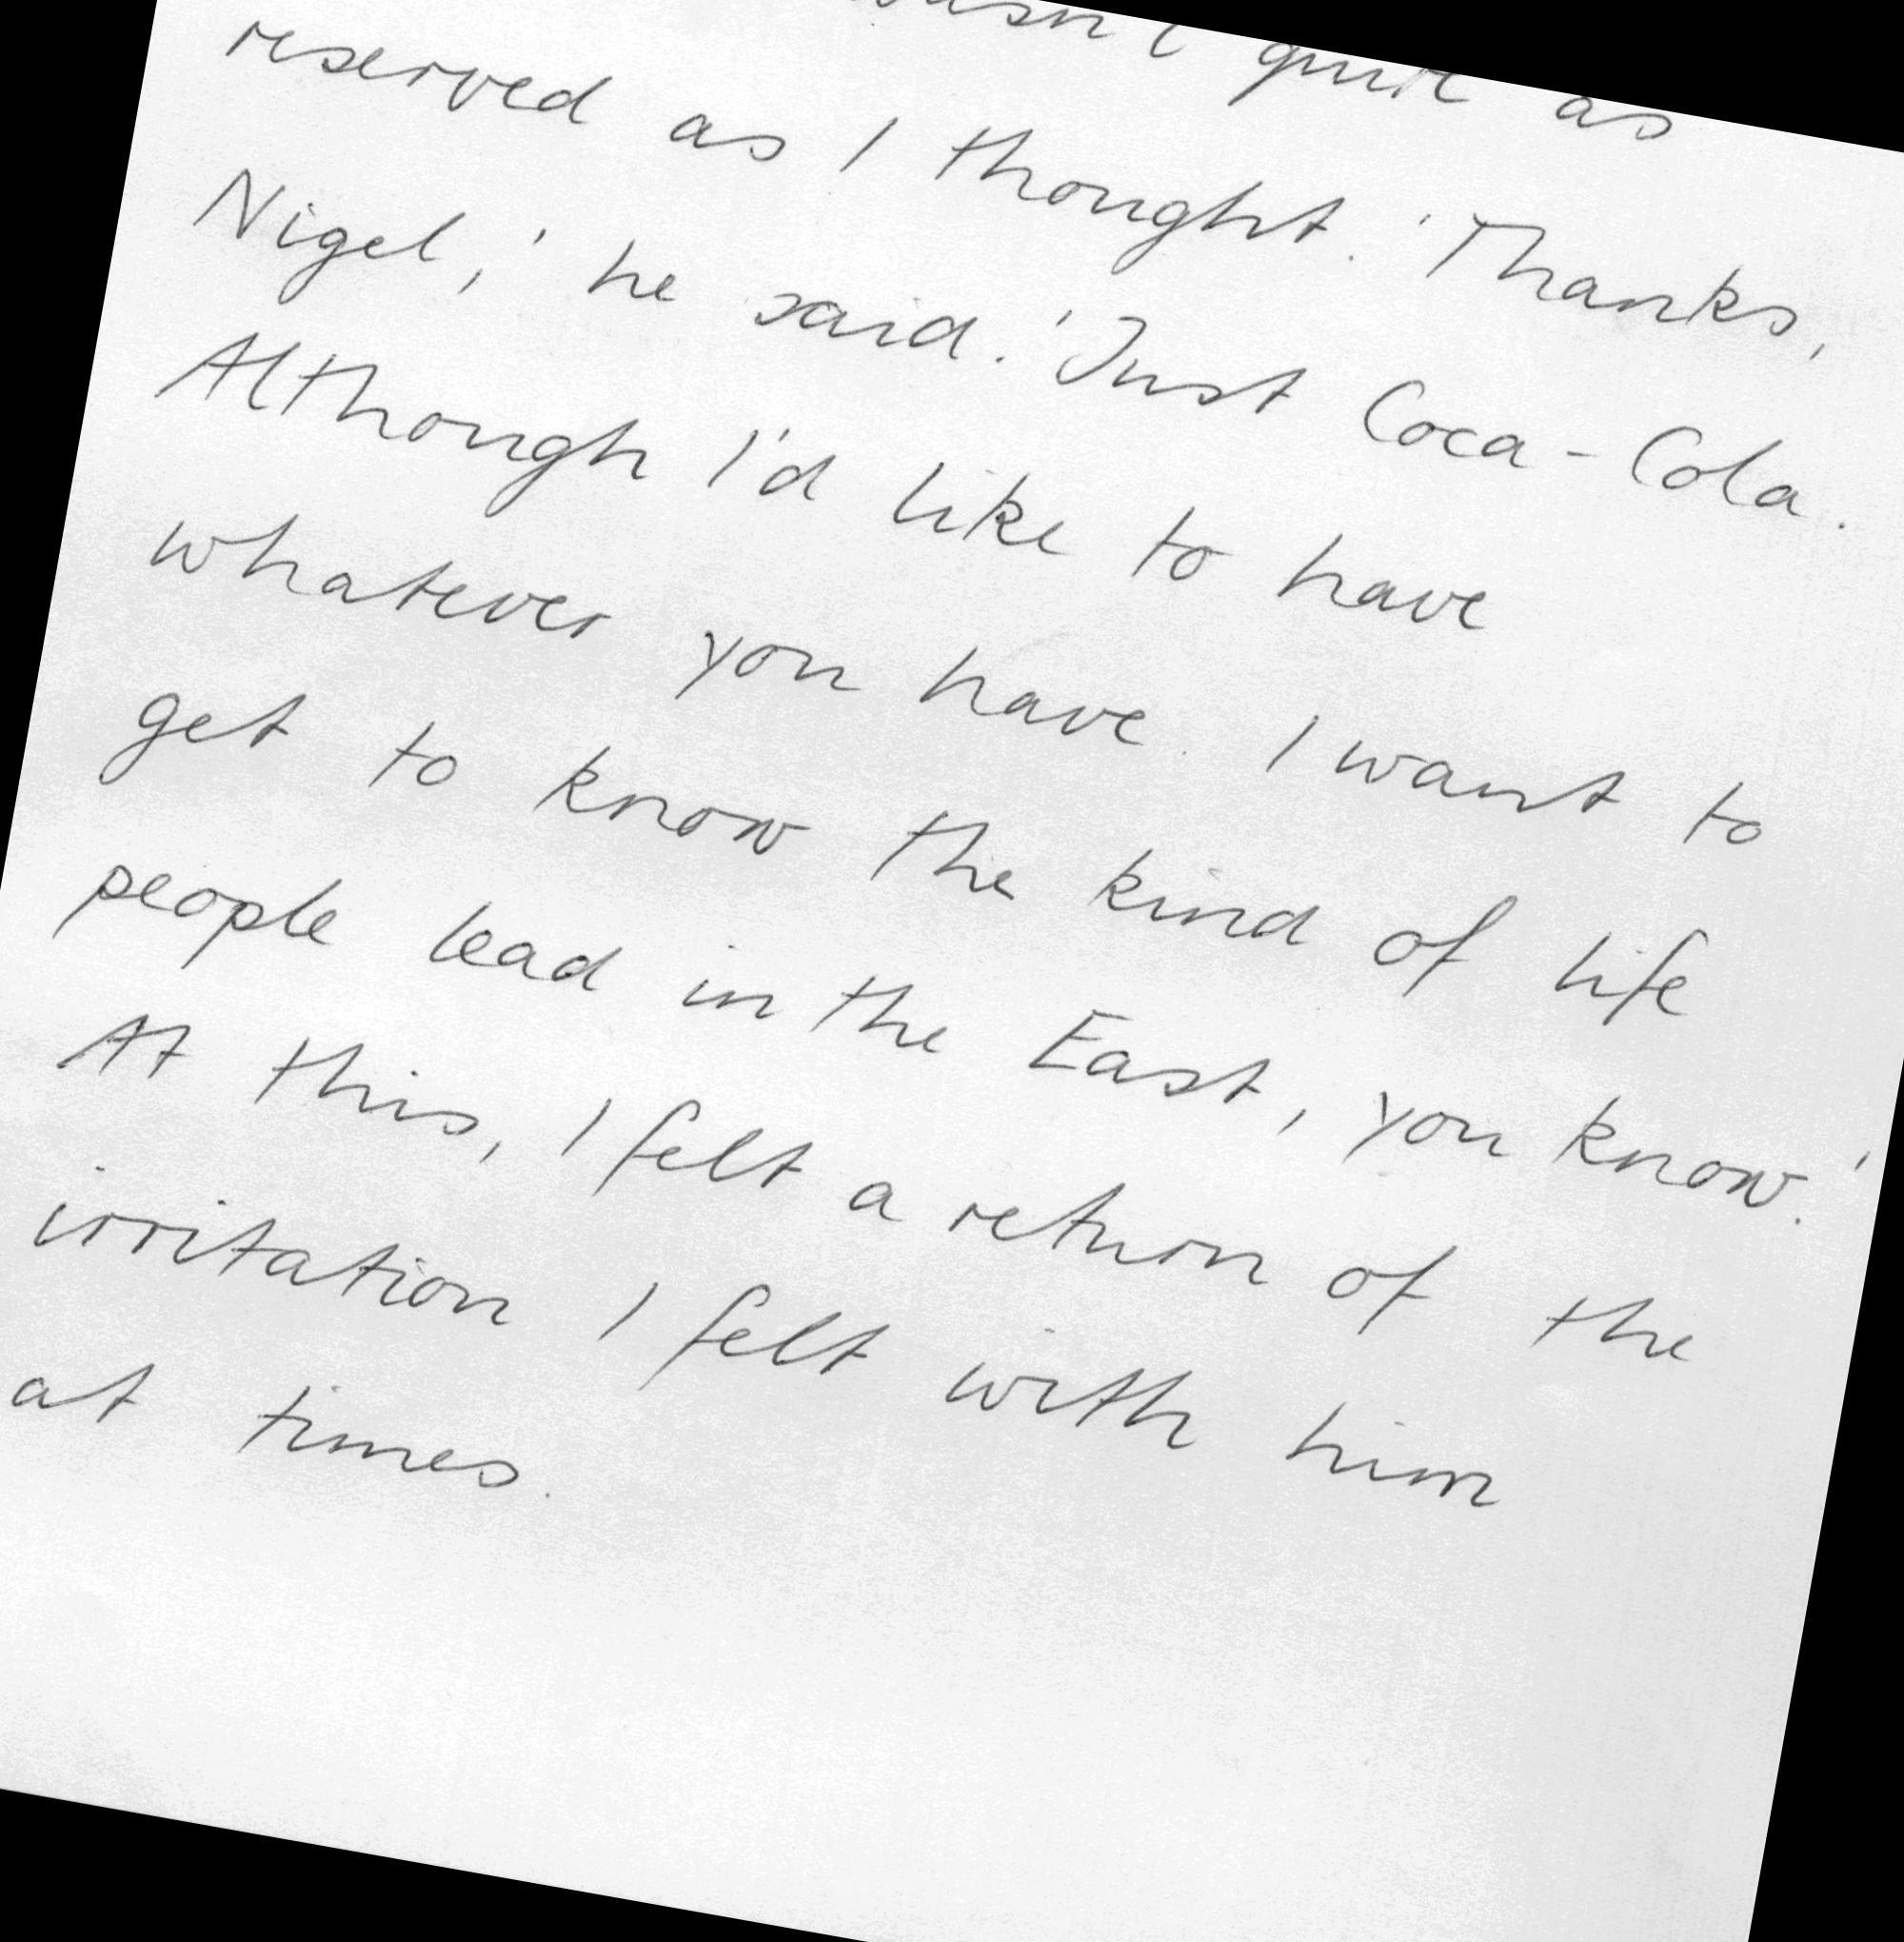 wasn't quite as
reserved as I thought. 'Thanks,
Nigel,' he said. 'Just Coca-Cola.
Although I'd like to have
whatever you have. I want to
get to know the kind of life
people lead in the East, you know.'
At this, I felt a return of the
irritation I felt with him
at times.